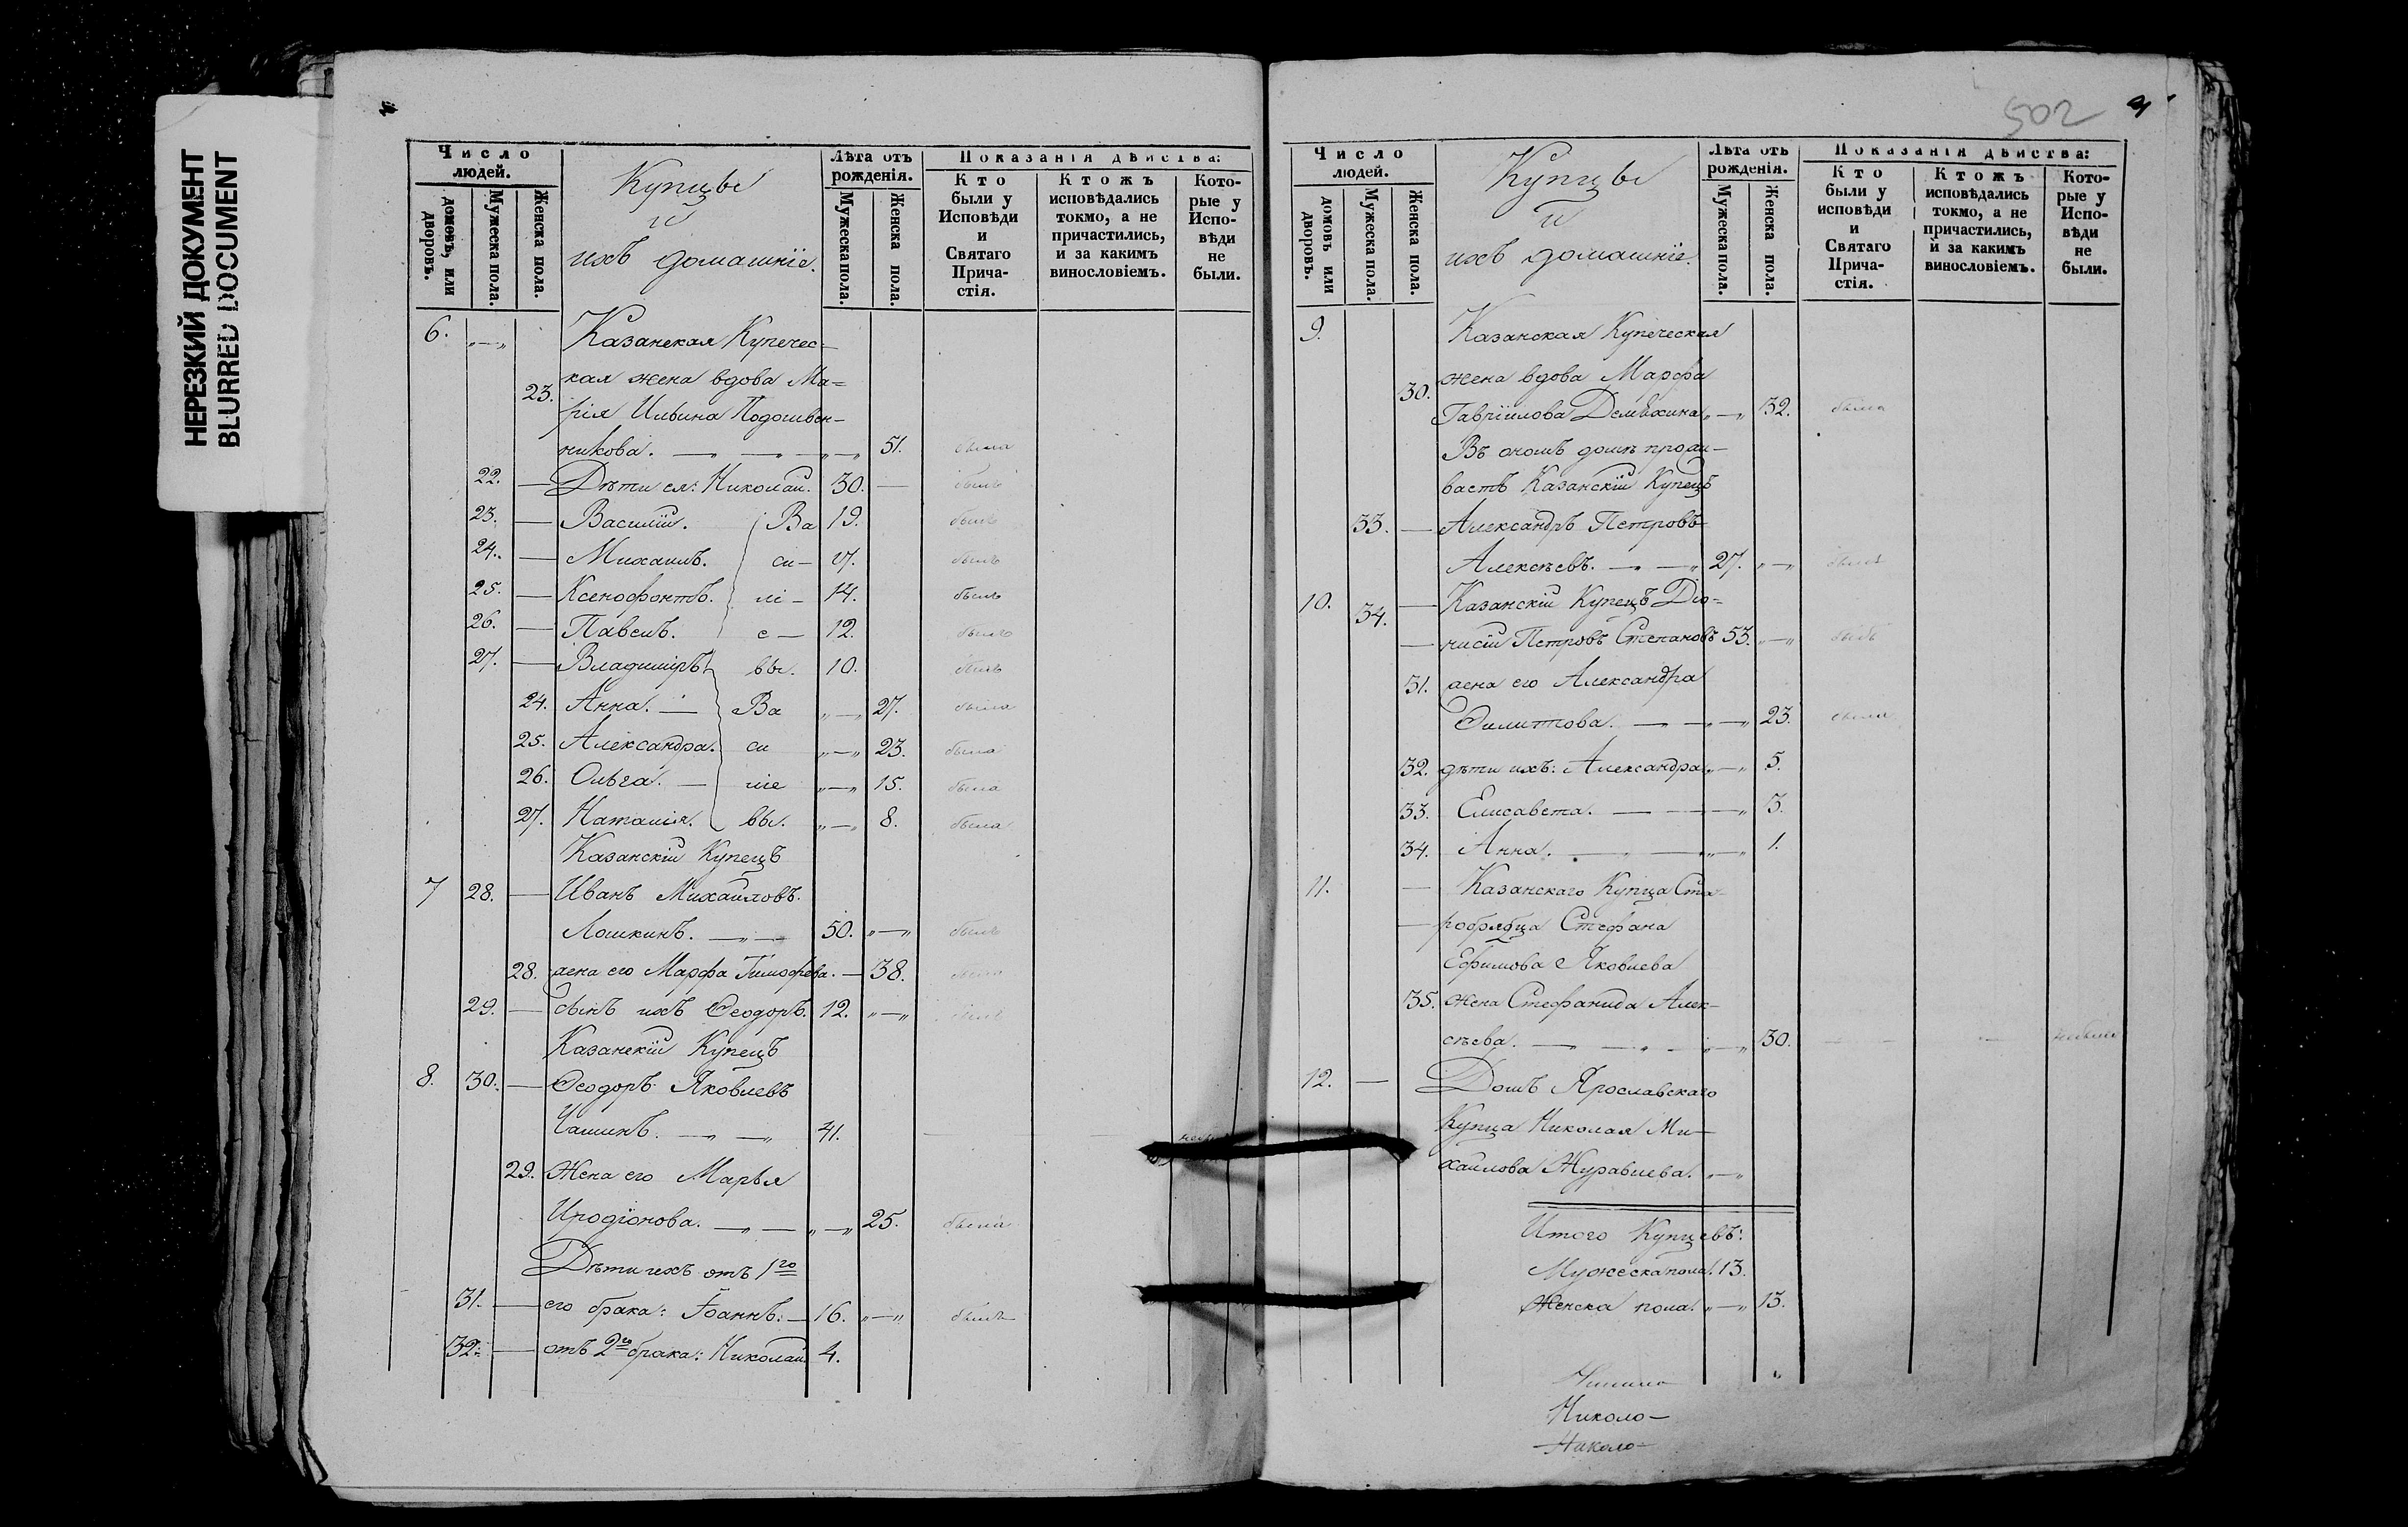 НЕРЕЗКИЙ ДОКУМЕНТ
BLURRED DOCUMENT
Число людей.
домовъ, или дворовъ.
Мужеска пола.
Женска пола.
Купцы
и
ихъ домашніе.
Лѣта отъ рожденія.
Мужеска пола.
Женска пола.
Показанія дѣйства:
Кто были у Исповѣди и Святаго Причастія.
Ктожъ исповѣдались токмо, а не причастились, и за какимъ винословіемъ.
Которые у Исповѣди не были.
6. „—„ Казанская Купечес-
23. кая жена вдова Ма=
рія Ильина Подошвен-
никова. — — „—„ 51. была
22. — Дѣти ея: Николай. 30. — былъ
23. — Василій. Ва 19. былъ
24. — Михаилъ. си- 17. былъ
25. — Ксенофонтъ. лі- 14. былъ
26. — Павелъ. е- 12. былъ
27. — Владиміръ вы. 10. былъ
24. Анна. — Ва „—„ 27. была
25. Александра. си „—„ 23. была
26. Ольга. — ліе „—„ 15. была
27. Наталія. вы. „—„ 8. была
Казанскій Купецъ
7 28. — Иванъ Михайловъ.
Лошкинъ. —„— 50. „—„ былъ
28. жена его Марфа Тимофѣева. — 38. была
29. — сынъ ихъ Ѳеодоръ. 12. „—„ былъ
Казанскій Купецъ
8. 30. — Ѳеодоръ Яковлевъ
Чашинъ. —„—„ 41.
29. Жена его Марья
Иродіонова. —„— „—„ 25. была
Дѣти ихъ отъ 1го
31. — его брака: Іоаннъ. — 16. „—„ былъ
32. — отъ 2го брака: Николай 4.
502
Число людей.
домовъ или дворовъ.
Мужеска пола.
Женска пола.
Купцы
и
ихъ домашніе.
Лѣта отъ рожденія.
Мужеска пола.
Женска пола.
Показанія дѣйства:
Кто были у исповѣди и Святаго Причастія.
Ктожъ исповѣдались токмо, а не причастились, и за какимъ винословіемъ.
Которые у Исповѣди не были.
9. Казанская Купеческая
30. жена вдова Марфа
Гавріилова „—„ 32. была
Въ ономъ домѣ прожи-
ваетъ Казанскій Купецъ
33. — Александръ Петровъ
Алексѣевъ. —„ —„ 27. „—„ былъ
10. 34. — Казанскій Купецъ Діо=
— нисій Петровъ Степановъ 53. „—„ былъ
31. жена его Александра
Филиппова. —„ —„—„ 23. была
32. дѣти ихъ: Александра „—„ 5.
33. Елисавета. — — —„ 3.
34. Анна. —„ —„—„ 1.
11. — Казанскаго Купца Ста-
— рообрядца Стефана
Ефимова Яковлева
35. жена Стефанида Алек-
сѣева. —„ —„— „—„ 30. не была
12. — Домъ Ярославскаго
Купца Николая Ми-
хайлова Журавлева. „—„
Итого Купцевъ:
Мужеска пола. 13.
Женска пола. „—„ 13.
Николо-
Николо-